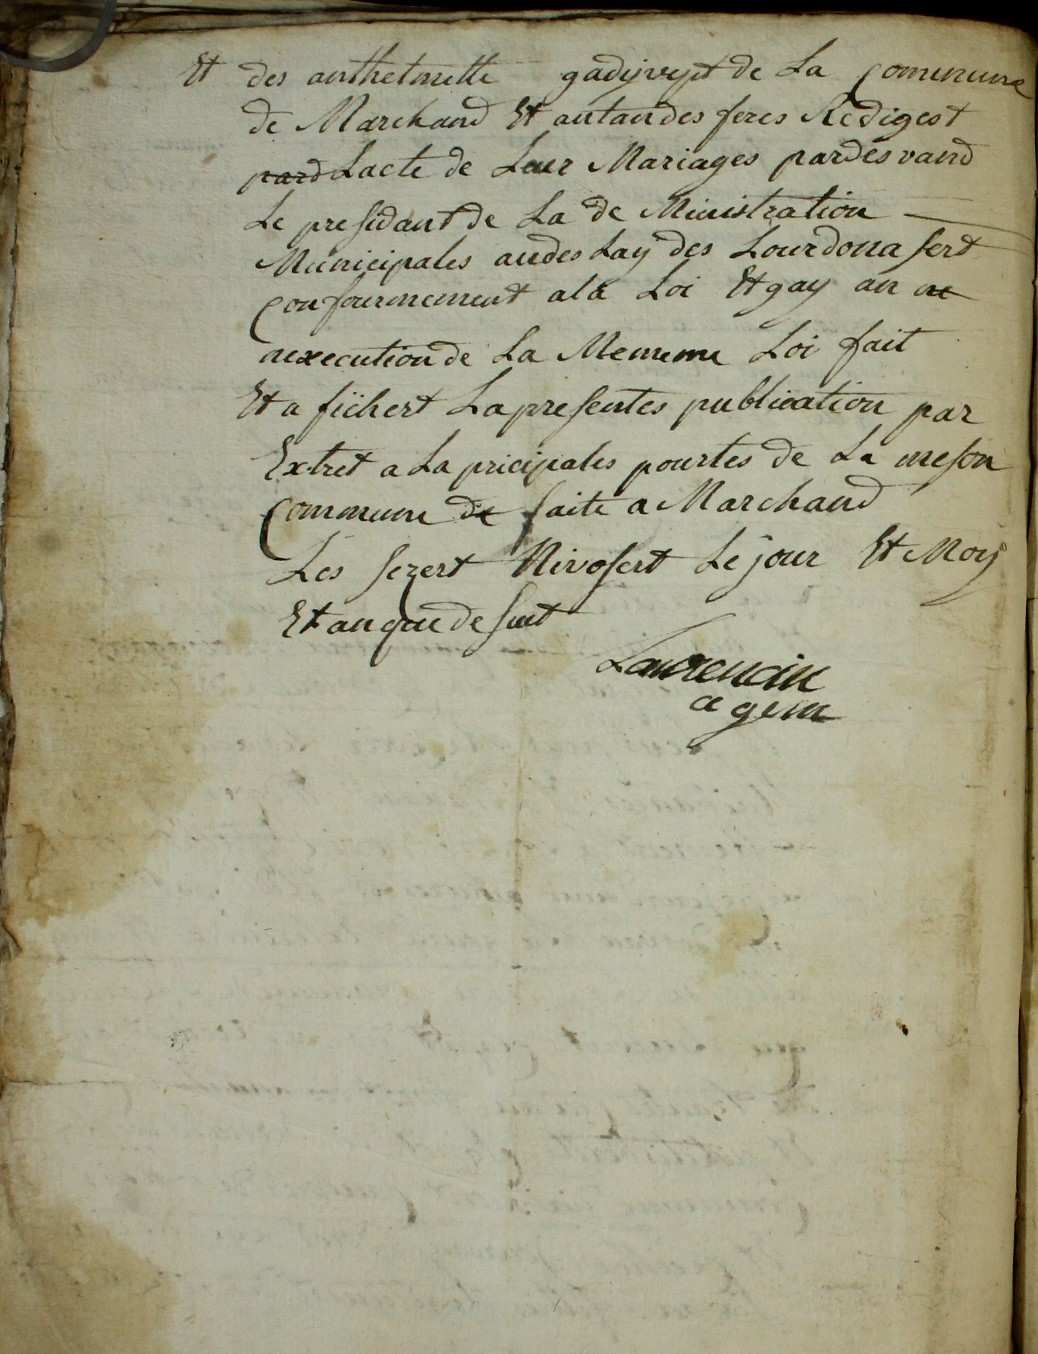 Et des anthelmette gadijvejt de La Commune
de Marchand Et antandes feres Redigest
pard Lacte de Leur Mariages pardesvand
Le presidant de La de Ministration
Municipales audes Lay des Lourdonnasert
Confournement a la Loi Et gay an ne
nexecution de La Mememe Loi fait
Et a fichert La presentes publication par
Extret a La pricipales pourtes de La meson
Commune de faite a Marchand
Les sezert Nivosert Le jour Et Moy
Et an que desut
Laurencin
agem